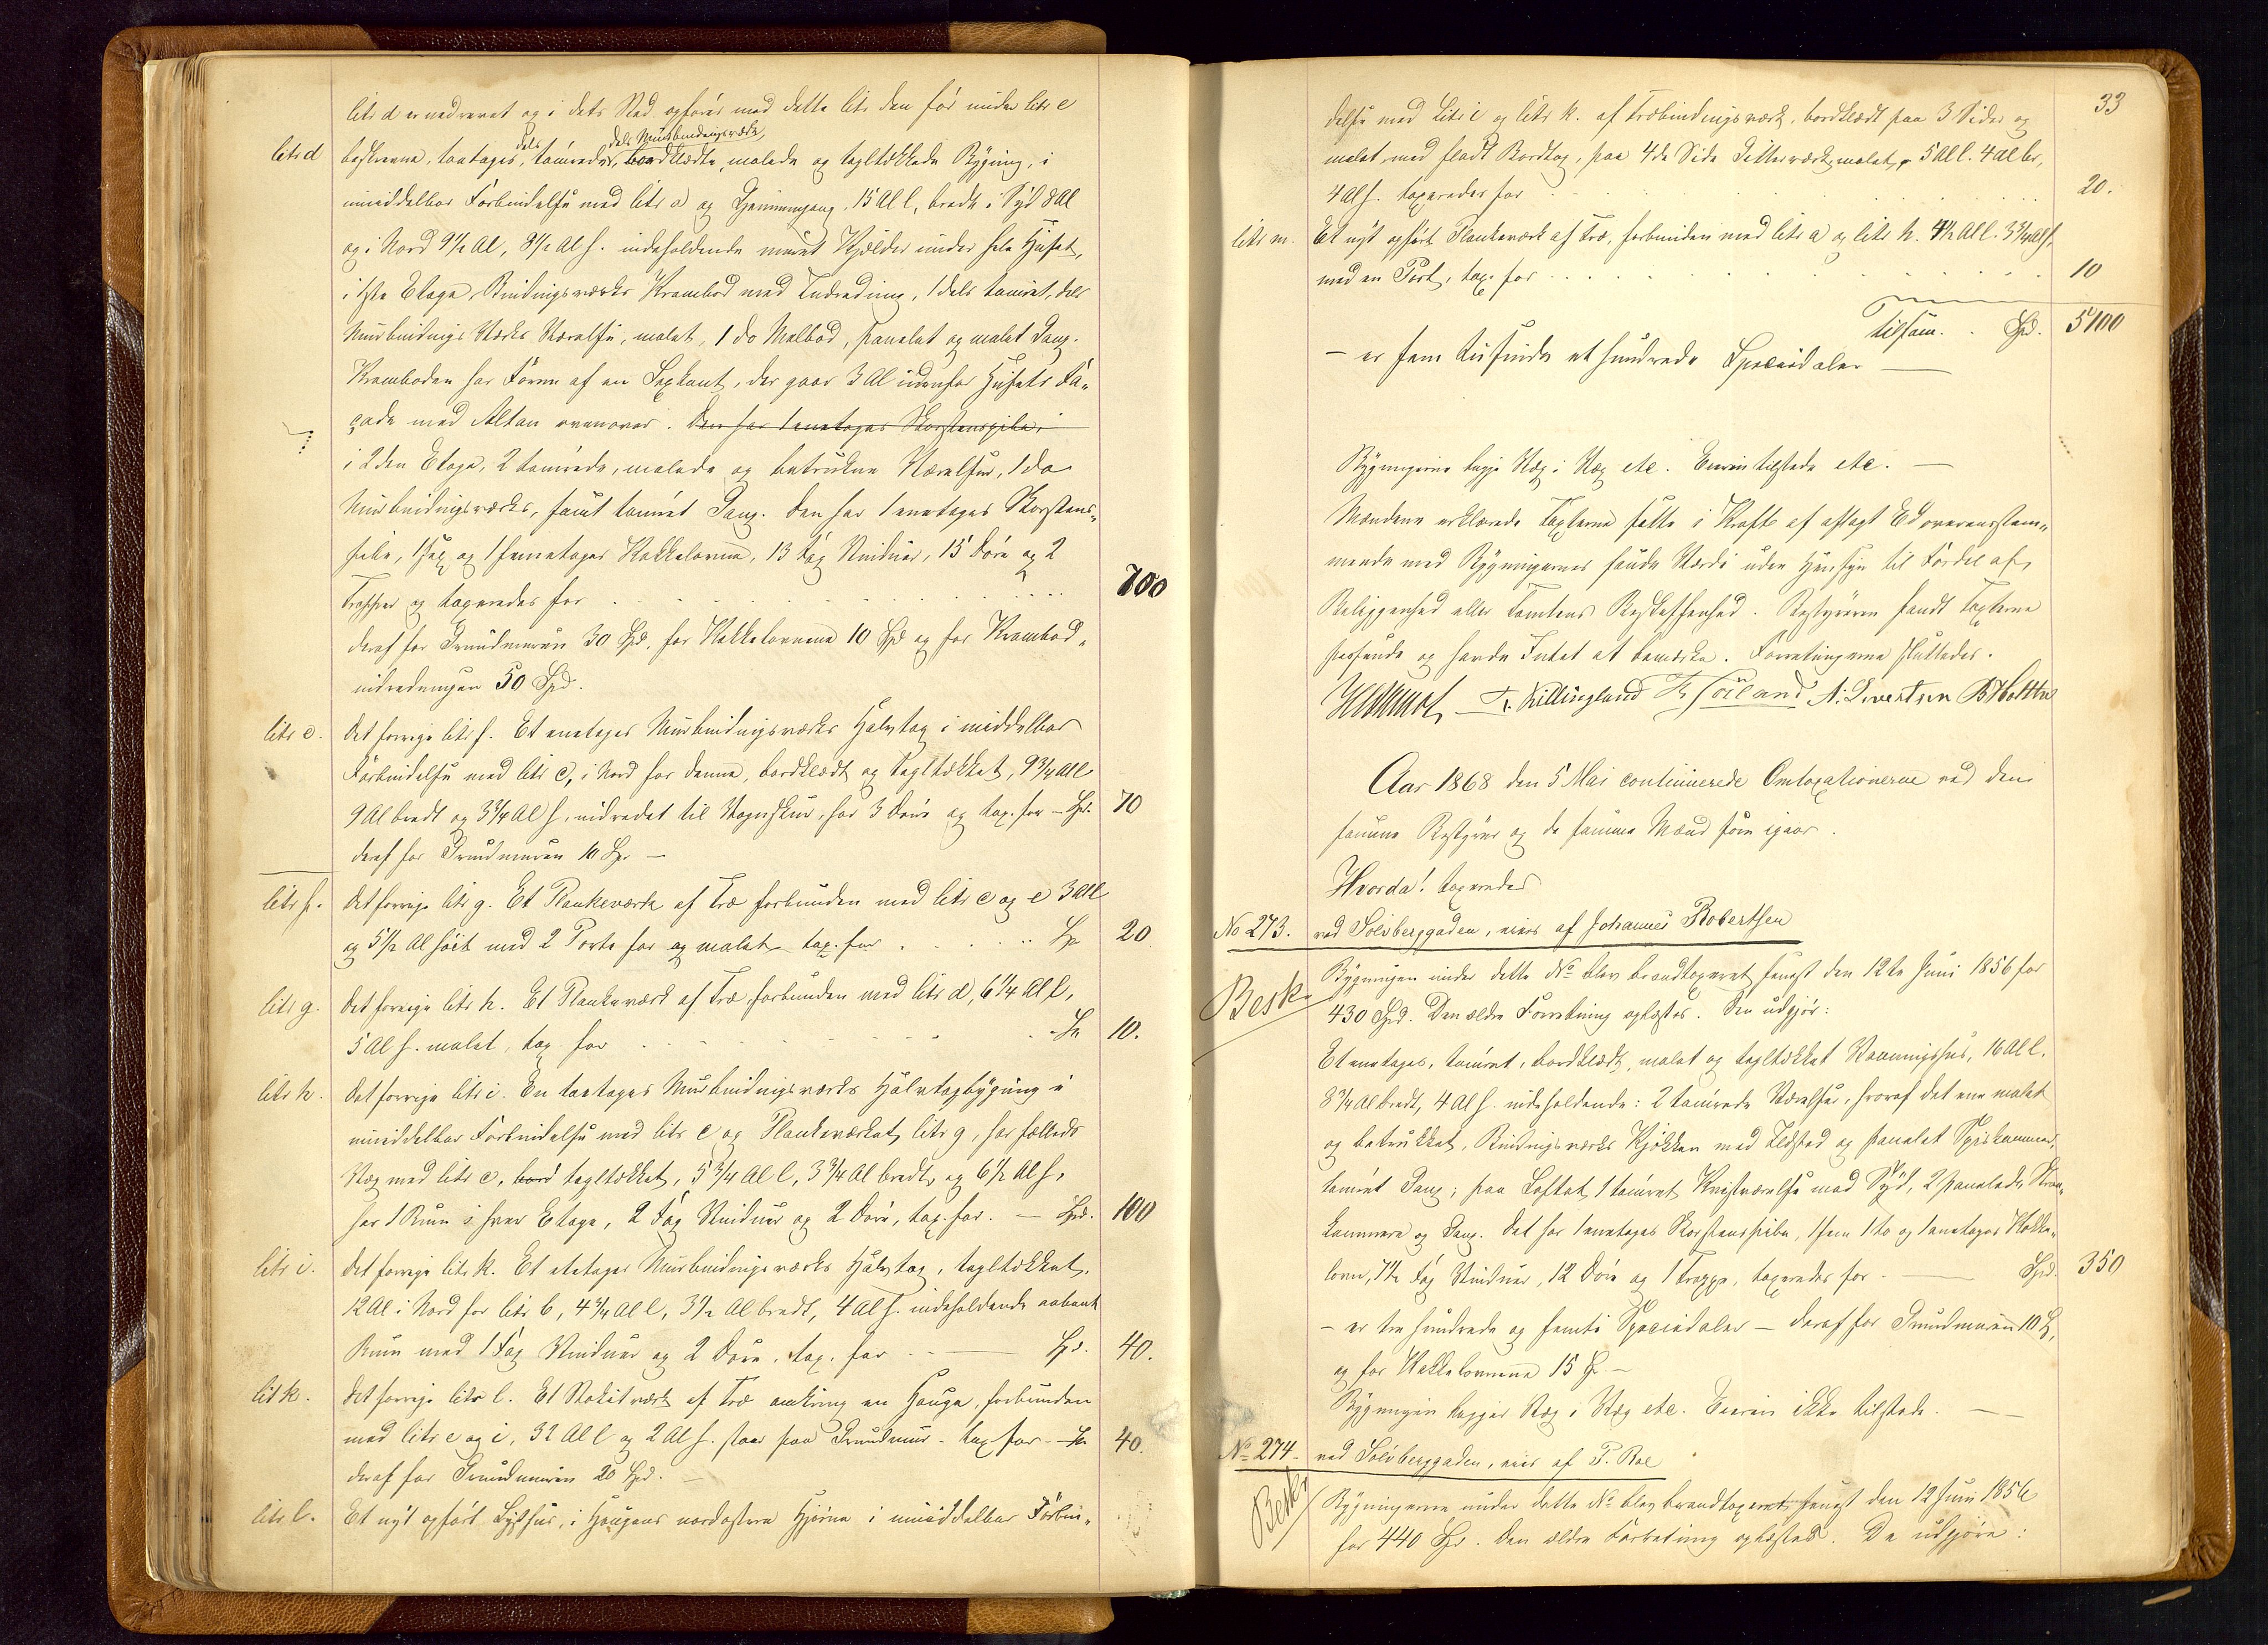 litr d er nedrevet og i dets Sted opføres med dette litr den før under litr e
litr d
beskrevne, toetages, dels tømrede, dels Murbindingsværk, bordklædte, malede og tegltækkede Bygning, i
umiddelbar Forbindelse med litr a og Gjennemgang, 15 Al l, bredt i Syd 8 Al
og i Nord 9 1/2 Al, 8 1/2 Al h. indeholdende muret Kjelder under hele Huset,
i 1ste Etage, Bindingsværks Krambod med Indredning, 1 dels tømret, dels
Murbindings Værks Værelse, malet, 1 do Melbod, panelet og malet Gang.
Kramboden har Form af en Sexkant, der gaar 3 Al udenfor Husets Fa-
çade med Altan ovenover. Den har 1 enetages Skorstenspibe,
i 2den Etage, 2 tømrede, malede og betrukne Værelser, 1 do
Murbindingsværks, samt tømret Gang. Den har 1 enetages Skorstens-
pibe, 1 sex og 1 femetages Kakkelovn, 13 Fag Vinduer, 15 Døre og 2
Trapper og taxeredes for 700
deraf for Grundmuren 30 Spd, for Kakkelovnene 10 Spd og for Krambod-
indredningen 50 Spd.
litr e.
Det forrige litr f. Et enetages Murbindingsværks Halvtag i middelbar
Forbindelse med litr c, i Nord for denne, bordklædt og tegltækket, 9 3/4 Al l
9 Al bredt og 3 3/4 Al h, indredet til Vognskur, har 3 Døre og tax. for – Spd. 70
deraf for Grundmuren 10 Sp. –
litr f.
Det forrige litr g. Et Plankeværk af Træ forbunden med litr c og e 3 Al l
og 5 1/2 Al høit med 2 Porte for og malet tax. for Sp 20
litr g.
Det forrige litr h. Et Plankeværk af Træ, forbunden med litr d, 6 1/4 Al l,
5 Al h. malet, tax. for Sp 10.
litr h.
Det forrige litr i. En toetages Murbindingsværks Halvtagbygning i
umiddelbar Forbindelse med litr c og Plankeværket litr g, har fælleds
Væg med litr c, bord tegltækket, 5 3/4 Al l, 3 3/4 Al bredt og 6 1/2 Al h,
har 1 Rum i hver Etage, 2 Fag Vinduer og 2 Døre, tax. for. – Spd. 100
litr i.
Det forrige litr k. Et etetages Murbindingsværks Halvtag, tegltækket,
12 Al i Nord for litr b, 4 3/4 Al l, 3 1/2 Al bredt, 4 Al h. indeholdende aabent
Rum med 1 Fag Vinduer og 2 Døre, tax. for Sp. 40.
lit k.
Det forrige litr l. Et Stakitværk af Træ omkring en Hauge, forbunden
med litr e og i, 32 Al l og 2 Al h. staar paa Grundmur – tax for – Sp 40.
deraf for Grundmuren 20 Spd. –
litr l.
Et nyt opført Lysthus, i Haugens nordostre Hjørne i umiddelbar Forbin-
33
delse med Litr i og litr k. af Træbindingsværk, bordklædt paa 3 Sider og
malet med fladt Bordtag, paa 4de Side Gitterværk, malet, 5 Al l. 4 Al br,
4 Al h. taxeredes for 20.
litr m.
Et nyt opført Plankeværk af Træ, forbunden med litr a og litr h. 4 1/2 Al l. 3 3/4 Al h.
med en Port, tax. for 10
Tilsam. Spd. 5100
– er fem tusinde et hundrede Speciedaler –
Bygningerne ligge Væg i Væg etc. Eieren tilstede etc. –
Mændene erklærede Taxterne satte i Kraft af aflagt Ed overensstem-
mende med Bygningernes sande Værdi uden Hensyn til Fordel af
Beliggenhed eller Tomtens Beskaffenhed. Bestyreren fandt Taxterne
passende og havde Intet at bemærke. Forretningerne sluttedes.
T. Killingland A. Sivertsen
Aar 1868 den 5 Mai continuerede Omtaxationerne ved den
samme Bestyrer og de samme Mænd som igaar.
Hvorda! taxeredes
No 273. ved Sølvberggaden, eies af Johannes Robertsen
Beskr
Bygningen under dette No blev brandtaxeret senest den 12te Juni 1856 for
430 Spd. Den ældre Forretning oplæstes. Den udgjør:
Et enetages, tømret, bordklædt, malet og tegltækket Vaaningshus, 16 Al l.
8 3/4 Al bredt, 4 Al h. indeholdende: 2 tømrede Værelser, hvoraf det ene malet
og betrukket, Bindingsværks Kjøkken med Ildsted og panelet Spiskammer,
tømret Gang; paa Loftet 1 tømret Kvistværelse mod Syd, 2 panelede
kammere og Gang. Det har 1 enetages Skorstenspibe, 1 fem 1 to og 1 enetages Kakke-
lovn, 7 1/2 Fag Vinduer, 12 Døre og 1 Trappe, taxeredes for. Spd. 350
– er tre hundrede og femti Speciedaler – deraf for Grundmuren 10 Sp,
og for Kakkelovnene 15 Sp –
Bygningen ligger Væg i Væg etc. Eieren ikke tilstede. –
No 274. ved Sølvberggaden, eies af P. Roe
Beskr
Bygningerne under dette No blev brandtaxeret, senest den 12 Juni 1856
for 440 Spd. Den ældre Forretning oplæstes. De udgjøre: